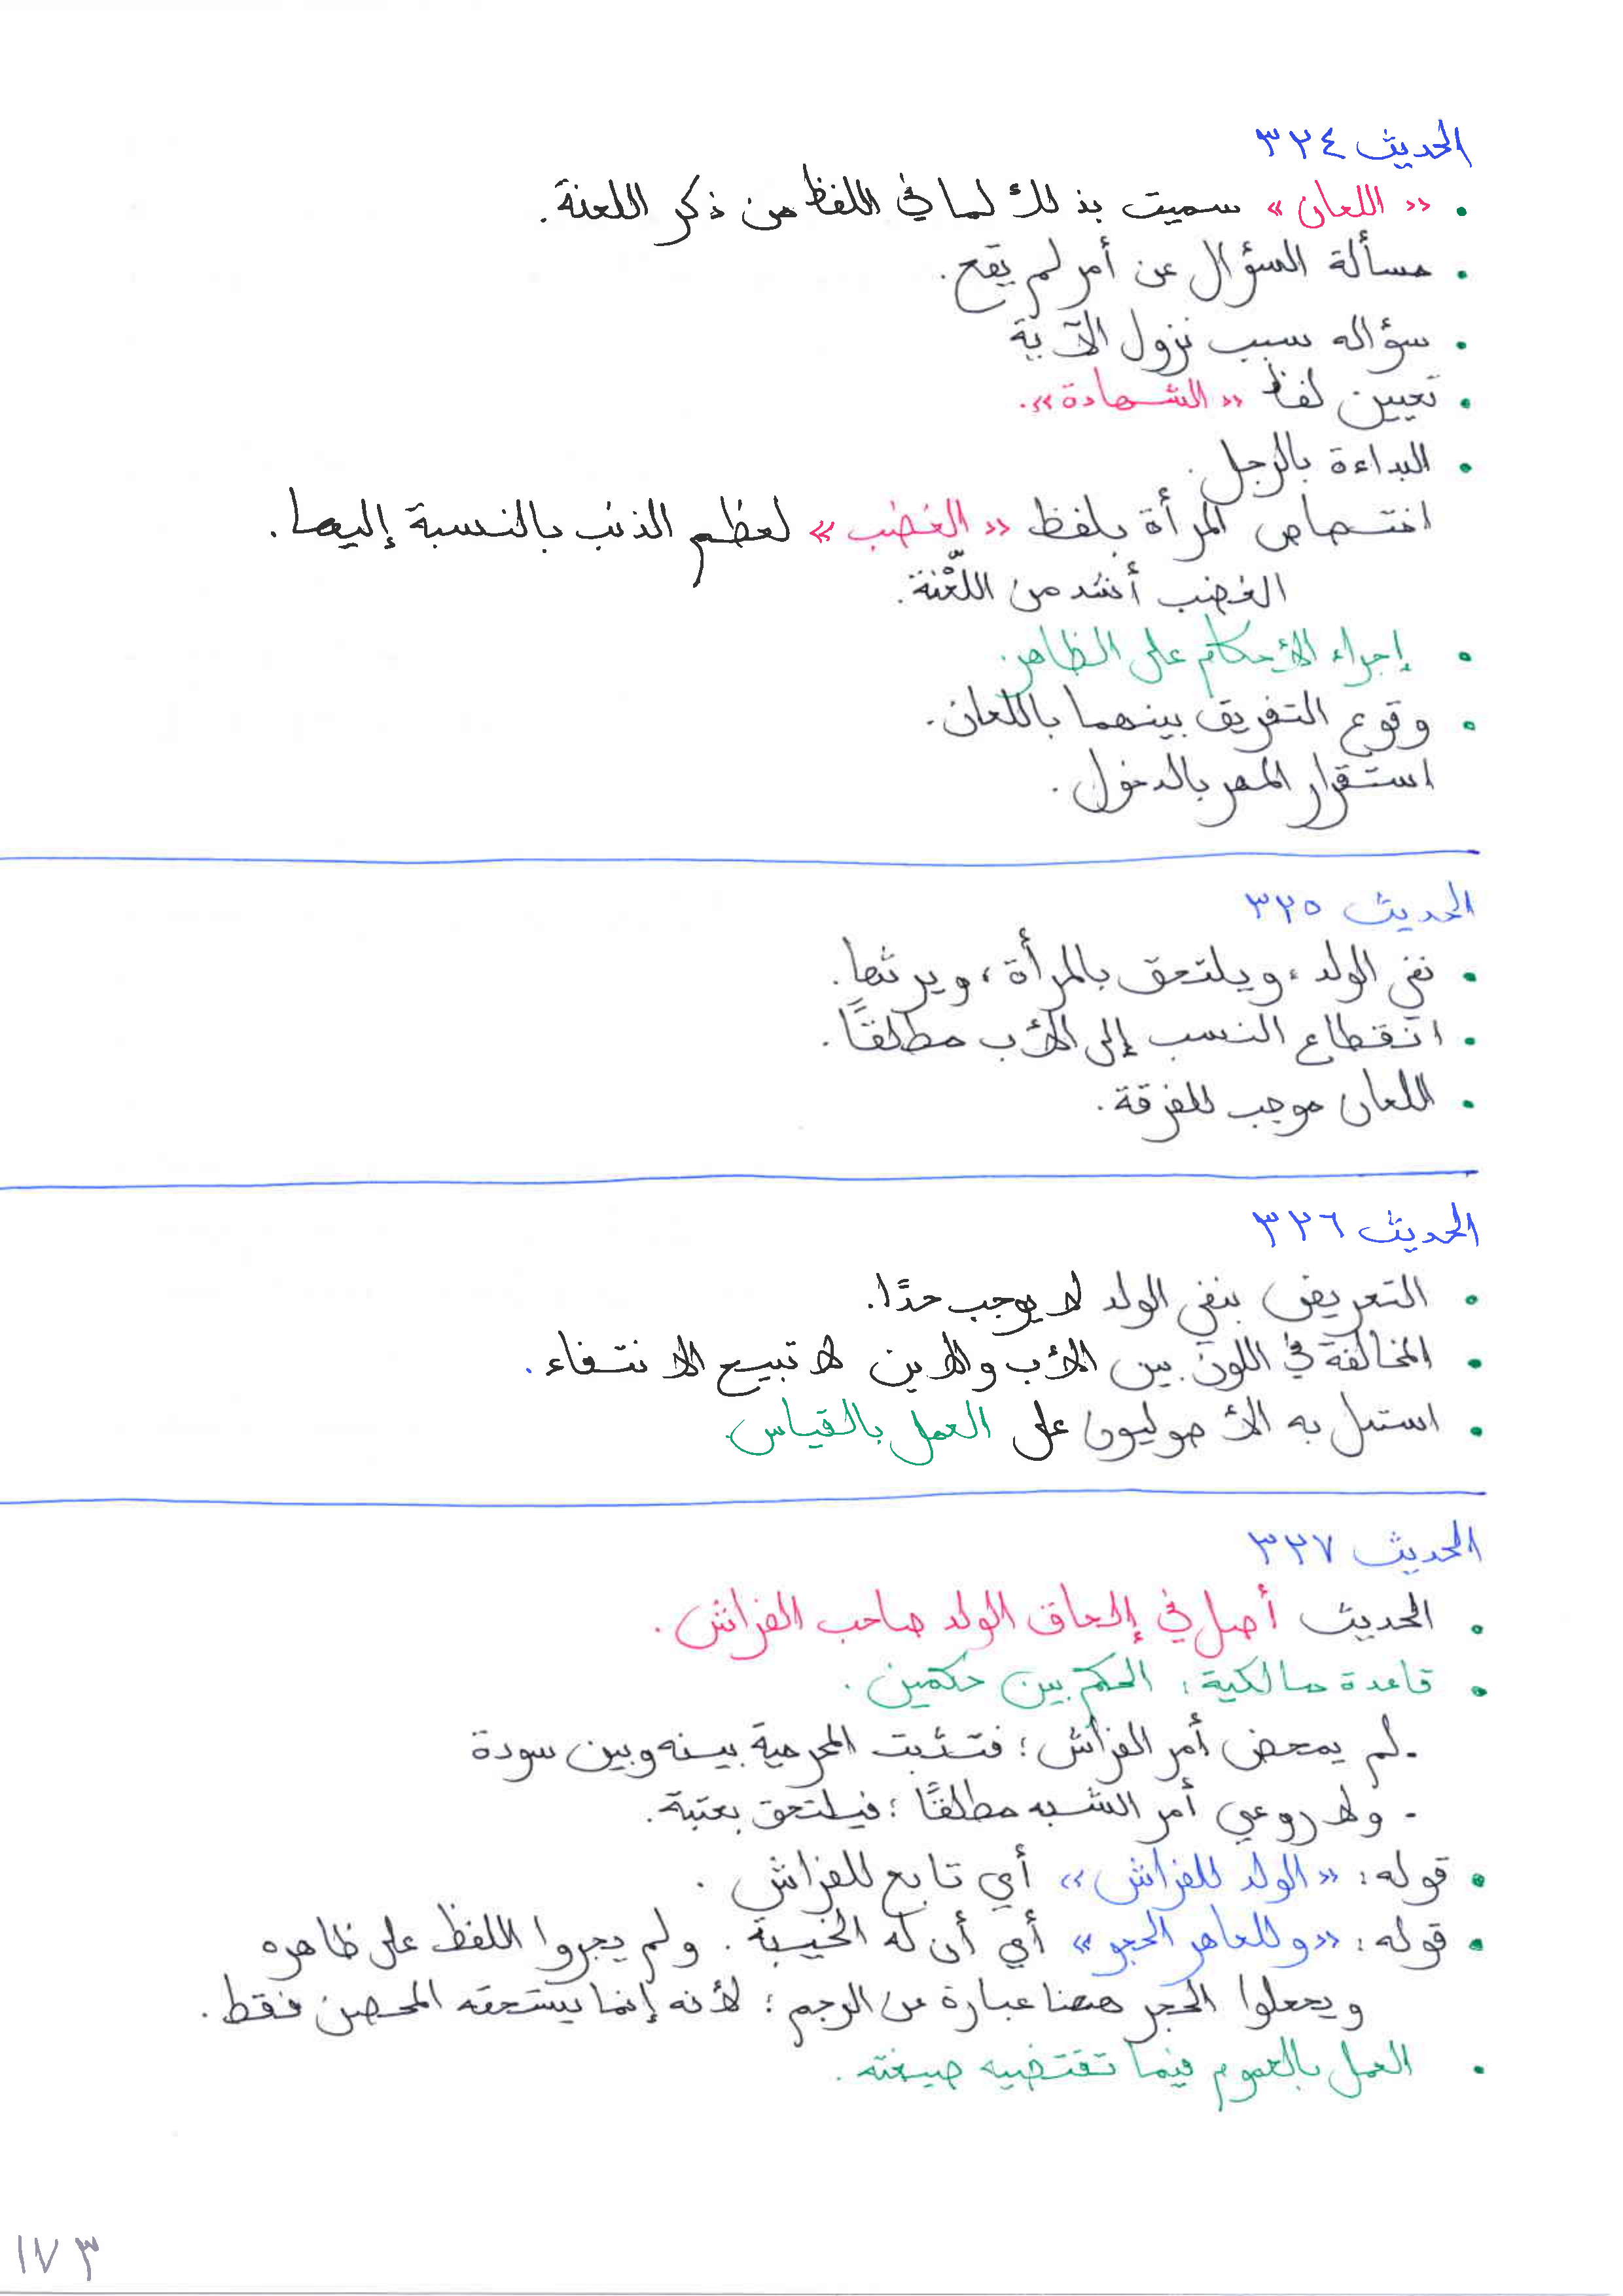 الحديث ٣٢٤
• «اللعان» سميت بذلك لما في اللفظ من ذكر اللعنة.
• مسألة السؤال عن أمر لم يقع.
• سؤاله سبب نزول الآية
• تعيين لفظ «الشهادة».
• البداءة بالرجل.
اختصاص المرأة بلفظ «الغضب» لعظم الذنب بالنسبة إليها.
الغضب أشد من اللّعْنة.
• إجراء الأحكام على الظاهر.
• وقوع التفريق بينهما باللعان.
استقرار المهر بالدخول.
الحديث ٣٢٥
• نفي الولد، ويلتحق بالمرأة، ويرثها.
• انقطاع النسب إلى الأب مطلقًا.
• اللعان موجب للفرقة.
الحديث ٣٢٦
• التعريض بنفي الولد لا يوجب حدًا.
• المخالفة في اللون بين الأب والابن لا تبيح الانتفاء.
• استدل به الأصوليون على العمل بالقياس
الحديث ٣٢٧
• الحديث أصل في إلحاق الولد صاحب الفراش.
• قاعدة مالكية: الحكم بين حكمين.
- لم يمحض أمر الفراش؛ فتثبت المحرمية بينه وبين سودة
- ولا روعي أمر الشبه مطلقًا؛ فيلتحق بعتبة.
• قوله: «الولد للفراش» أي تابع للفراش.
• قوله: «وللعاهر الحجر» أي أن له الخيبة. ولم يجروا اللفظ على ظاهره
ويجعلوا الحجر ههنا عبارة عن الرجم؛ لأنه إنما يستحقه المحصن فقط.
• العمل بالعموم فيما تقتضيه صيغته.
١٧٣